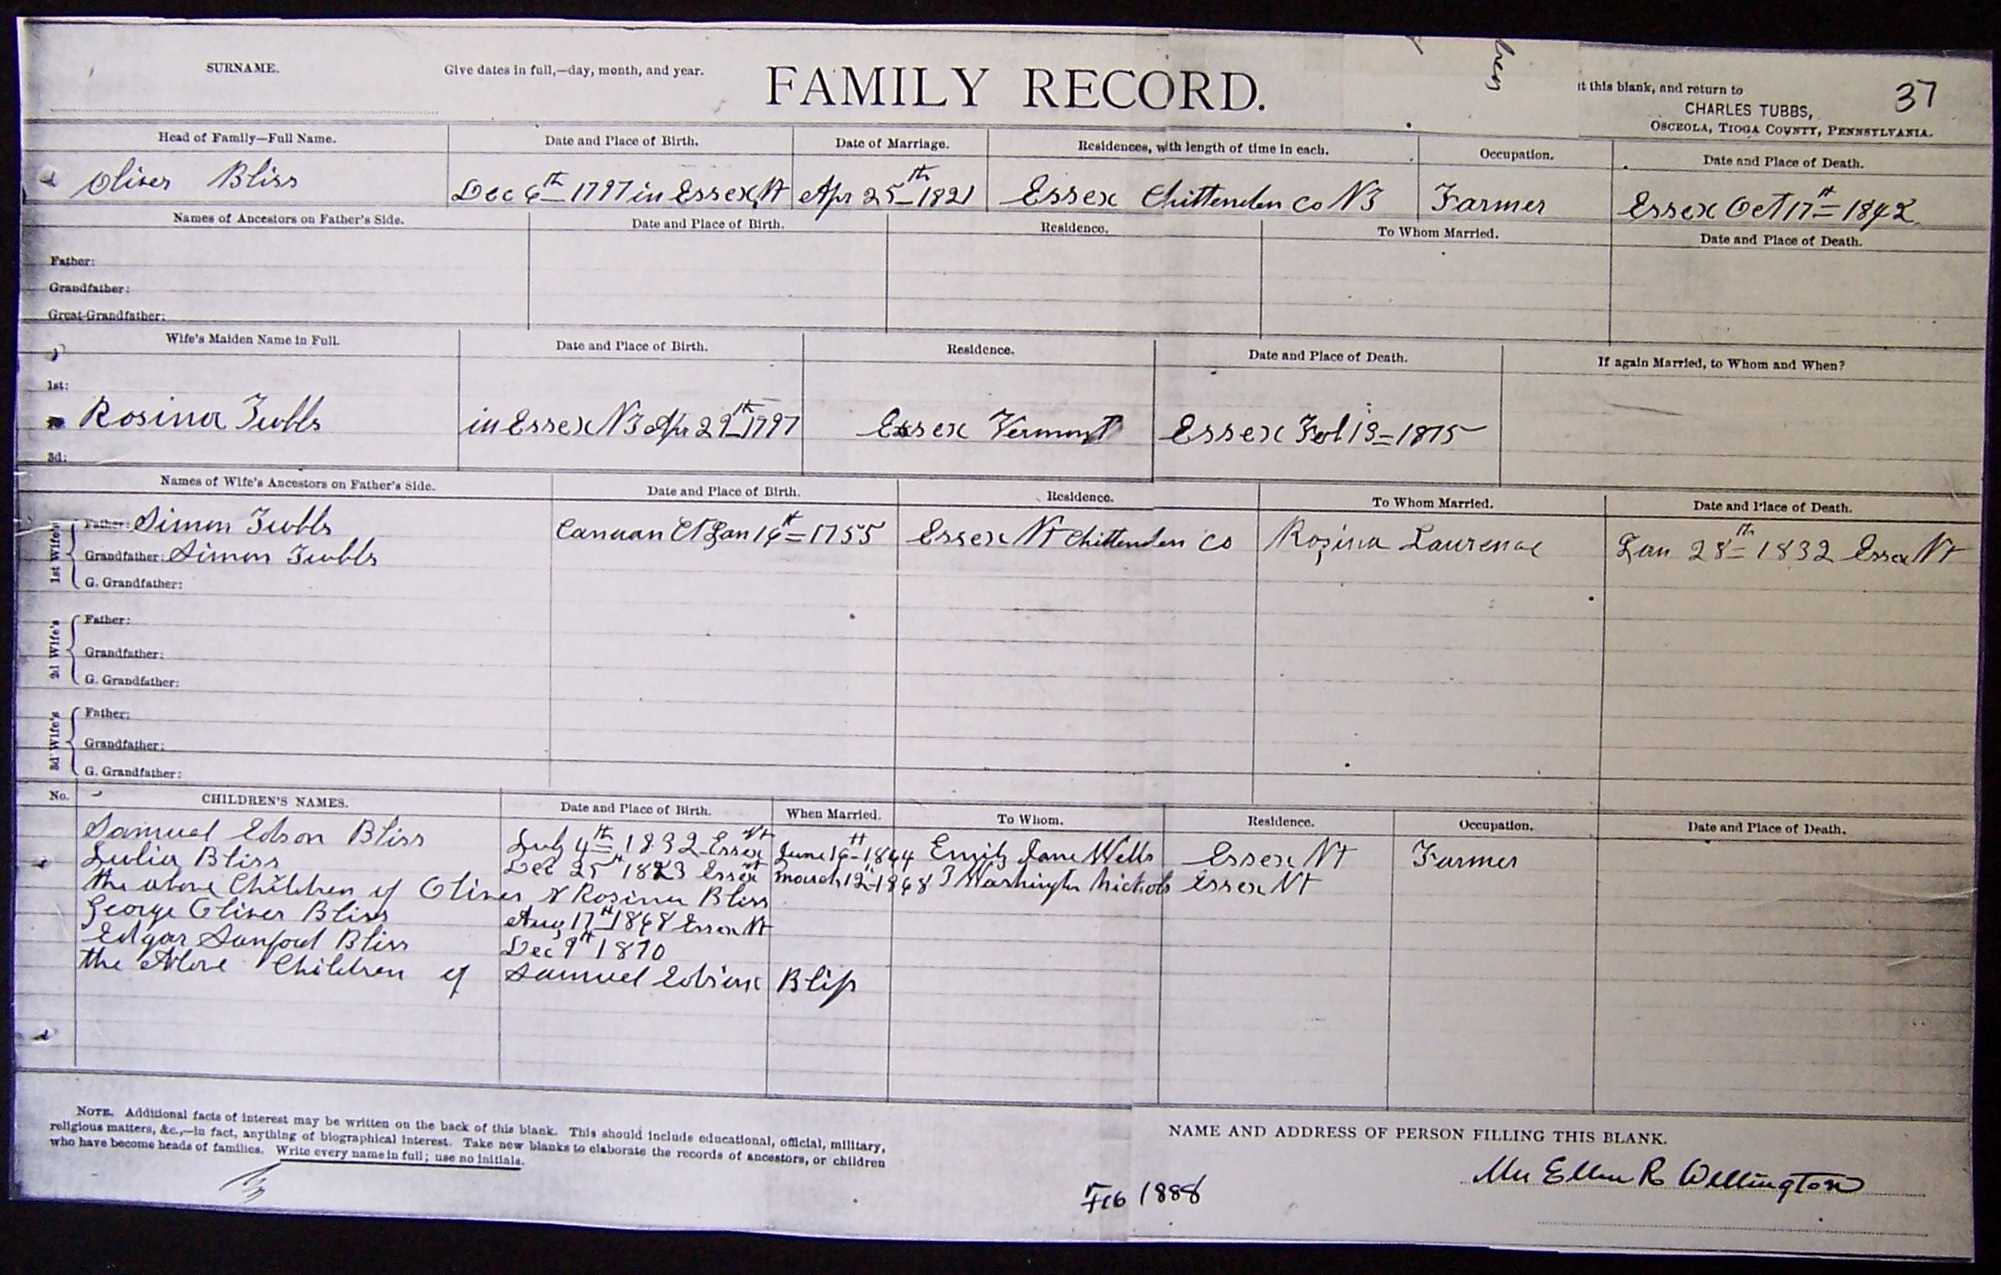 SURNAME.
Give dates in full,—day, month, and year.
FAMILY RECORD.
ben
it this blank, and return to
CHARLES TUBBS,
OSCEOLA, TIOGA COUNTY, PENNSYLVANIA.
37
Head of Family—Full Name. Date and Place of Birth. Date of Marriage. Residences, with length of time in each. Occupation. Date and Place of Death.
Oliver Bliss Dec 6th 1797 in Essex Vt Apr 25th 1821 Essex Chittenden co Vt Farmer Essex Oct 17th 1842
Names of Ancestors on Father's Side. Date and Place of Birth. Residence. To Whom Married. Date and Place of Death.
Father:
Grandfather:
Great-Grandfather:
Wife's Maiden Name in Full. Date and Place of Birth. Residence. Date and Place of Death. If again Married, to Whom and When?
1st:
Rosina Tubbs in Essex Vt Apr 29th 1797 Essex Vermont Essex Feb 13 1875
3d:
Names of Wife's Ancestors on Father's Side. Date and Place of Birth. Residence. To Whom Married. Date and Place of Death.
1st Wife's
Father: Simon Tubbs Canaan Ct Jan 16th 1755 Essex Vt Chittenden co Rosina Laurence Jan 28th 1832 Essex Vt
Grandfather: Simon Tubbs
G. Grandfather:
2d Wife's
Father:
Grandfather:
G. Grandfather:
3d Wife's
Father:
Grandfather:
G. Grandfather:
No. CHILDREN'S NAMES. Date and Place of Birth. When Married. To Whom. Residence. Occupation. Date and Place of Death.
Samuel Edson Bliss July 4th 1832 Essex Vt June 16th 1844 Emily Jane Wells Essex Vt Farmer
Julia Bliss Dec 25th 1823 Essex Vt March 12 1848 Washington Nichols Essex Vt
the above Children of Oliver & Rosina Bliss
George Oliver Bliss Aug 17th 1868 Essex Vt
Edgar Sanford Bliss Dec 9th 1870
the Above Children of Samuel Edson Bliss
NOTE. Additional facts of interest may be written on the back of this blank. This should include educational, official, military,
religious matters, &c.,—in fact, anything of biographical interest. Take new blanks to elaborate the records of ancestors, or children
who have become heads of families. Write every name in full; use no initials.
NAME AND ADDRESS OF PERSON FILLING THIS BLANK.
Mrs Ellen R Wellington
Feb 1888